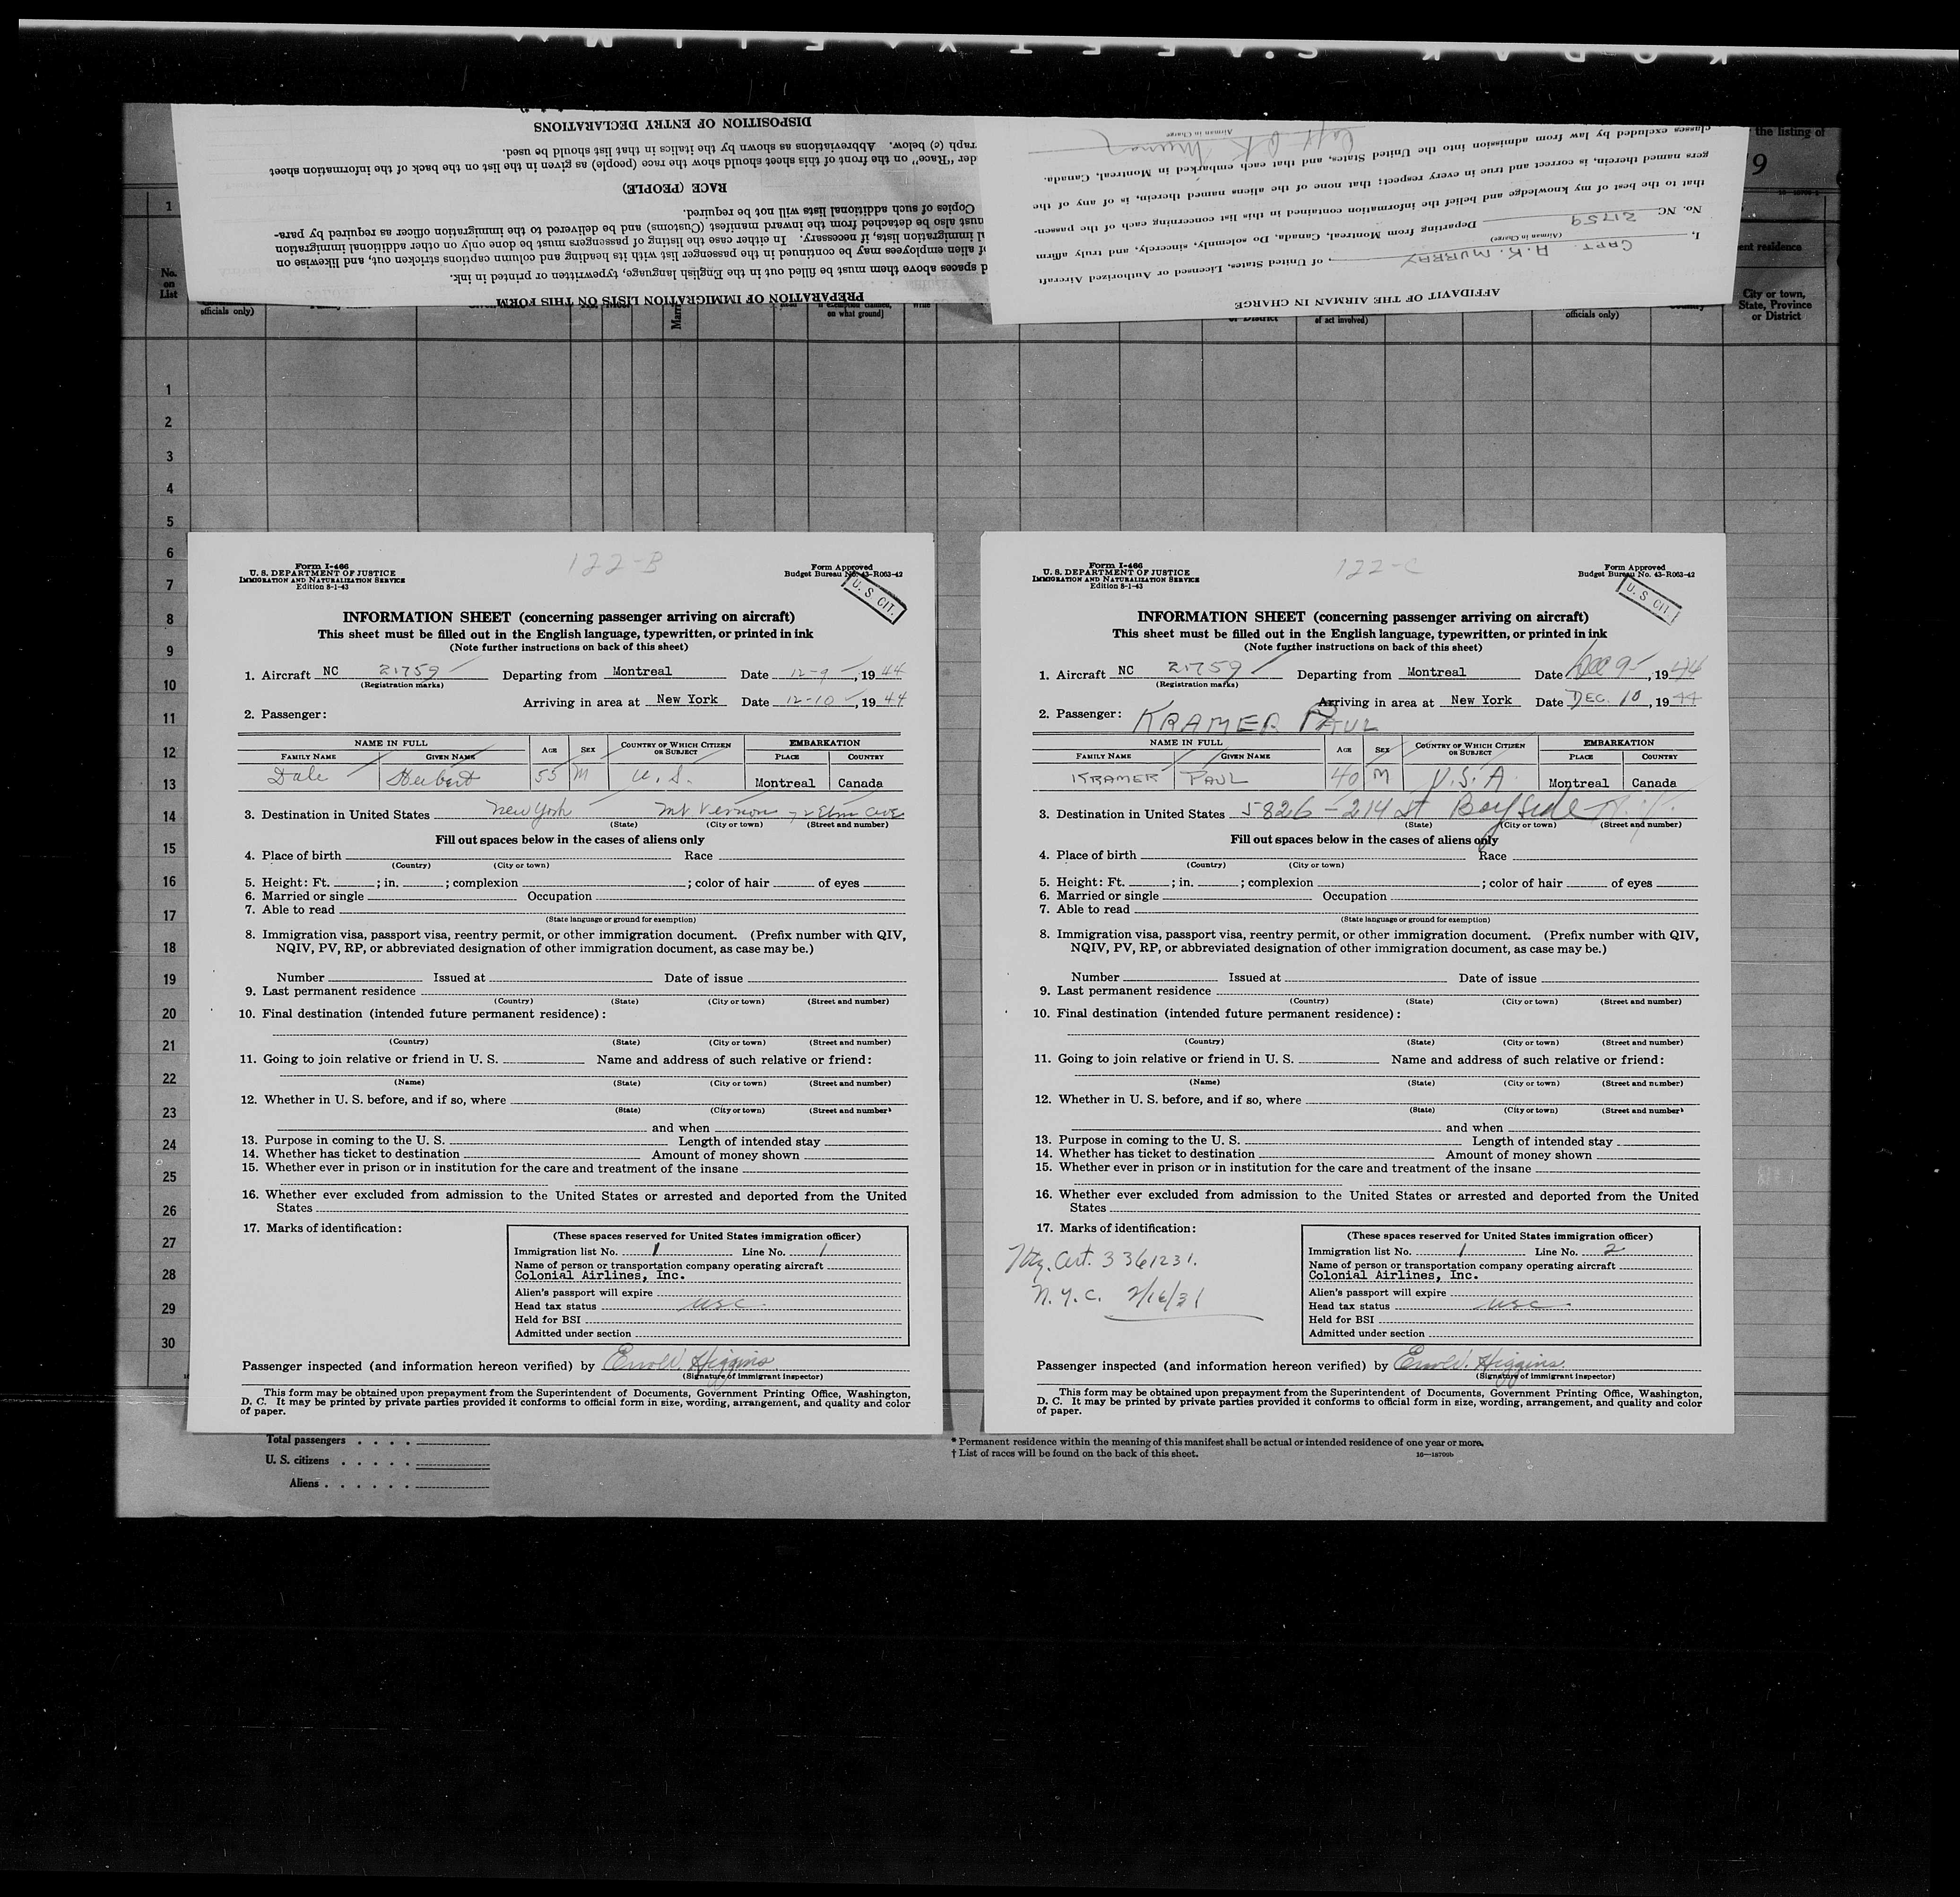 KODAK SAFETY FILM
DISPOSITION OF ENTRY DECLARATIONS
raph (c) below. Abbreviations as shown by the italics in that list should be used.
der "Race" on the front of this sheet should show the race (people) as given in the list on the back of the information sheet
RACE (PEOPLE)
Copies of such additional lists will not be required.
must also be detached from the inward manifest (Customs) and be delivered to the immigration officer as required by para-
l immigration lists, if necessary. In either case the listing of passengers must be done only on other additional immigration
f alien employees may be continued in the passenger list with its heading and column captions stricken out, and likewise on
d spaces above them must be filled out in the English language, typewritten or printed in ink.
PREPARATION OF IMMIGRATION LISTS ON THIS FORM
Airman in Charge
Capt A K Murray
classes excluded by law from admission into the United States, and that each embarked in Montreal, Canada.
gers named therein, is correct and true in every respect; that none of the aliens named therein, is of any of the
that to the best of my knowledge and belief the information contained in this list concerning each of the passen-
No. NC 21759 Departing from Montreal, Canada, Do solemnly, sincerely, and truly affirm
(Airman in Charge)
I, CAPT. A.K. MURRAY, of United States, Licensed or Authorized Aircraft
AFFIDAVIT OF THE AIRMAN IN CHARGE
the listing of
9
1
ent residence
No. on List
officials only)
Marri
on what ground]
or District
of act involved)
officials only)
City or town, State, Province or District
1
2
3
4
5
6
7
8
9
10
11
12
13
14
15
16
17
18
19
20
21
22
23
24
25
26
27
28
29
30
122-B
Form I-466
U. S. DEPARTMENT OF JUSTICE
IMMIGRATION AND NATURALIZATION SERVICE
Edition 8-1-43
Form Approved
Budget Bureau No. 43-R063-42
U. S CIT.
INFORMATION SHEET (concerning passenger arriving on aircraft)
This sheet must be filled out in the English language, typewritten, or printed in ink
(Note further instructions on back of this sheet)
1. Aircraft NC 21759 Departing from Montreal Date 12-9, 1944
(Registration marks)
Arriving in area at New York Date 12-10, 1944
2. Passenger:
NAME IN FULL AGE SEX COUNTRY OF WHICH CITIZEN OR SUBJECT EMBARKATION
FAMILY NAME GIVEN NAME PLACE COUNTRY
Dale Herbert 55 M U. S. Montreal Canada
3. Destination in United States New York Mt Vernon 72 Elm Ave
(State) (City or town) (Street and number)
Fill out spaces below in the cases of aliens only
4. Place of birth Race
(Country) (City or town)
5. Height: Ft. ; in. ; complexion ; color of hair of eyes
6. Married or single Occupation
7. Able to read
(State language or ground for exemption)
8. Immigration visa, passport visa, reentry permit, or other immigration document. (Prefix number with QIV,
NQIV, PV, RP, or abbreviated designation of other immigration document, as case may be.)
Number Issued at Date of issue
9. Last permanent residence
(Country) (State) (City or town) (Street and number)
10. Final destination (intended future permanent residence):
(Country) (State) (City or town) (Street and number)
11. Going to join relative or friend in U. S. Name and address of such relative or friend:
(Name) (State) (City or town) (Street and number)
12. Whether in U. S. before, and if so, where
(State) (City or town) (Street and number)
and when
13. Purpose in coming to the U. S. Length of intended stay
14. Whether has ticket to destination Amount of money shown
15. Whether ever in prison or in institution for the care and treatment of the insane
16. Whether ever excluded from admission to the United States or arrested and deported from the United
States
17. Marks of identification:
(These spaces reserved for United States immigration officer)
Immigration list No. 1 Line No. 1
Name of person or transportation company operating aircraft
Colonial Airlines, Inc.
Alien's passport will expire
Head tax status usc
Held for BSI
Admitted under section
Passenger inspected (and information hereon verified) by Errol W. Higgins
(Signature of immigrant inspector)
This form may be obtained upon prepayment from the Superintendent of Documents, Government Printing Office, Washington,
D. C. It may be printed by private parties provided it conforms to official form in size, wording, arrangement, and quality and color
of paper.
122-C
Form I-466
U. S. DEPARTMENT OF JUSTICE
IMMIGRATION AND NATURALIZATION SERVICE
Edition 8-1-43
Form Approved
Budget Bureau No. 43-R063-42
U. S CIT.
INFORMATION SHEET (concerning passenger arriving on aircraft)
This sheet must be filled out in the English language, typewritten, or printed in ink
(Note further instructions on back of this sheet)
1. Aircraft NC 21759 Departing from Montreal Date Dec 9, 1944
(Registration marks)
Arriving in area at New York Date DEC. 10, 1944
2. Passenger: KRAMER PAUL
NAME IN FULL AGE SEX COUNTRY OF WHICH CITIZEN OR SUBJECT EMBARKATION
FAMILY NAME GIVEN NAME PLACE COUNTRY
KRAMER PAUL 40 M U.S.A. Montreal Canada
3. Destination in United States 5826-214 St Bayside N.Y.
(State) (City or town) (Street and number)
Fill out spaces below in the cases of aliens only
4. Place of birth Race
(Country) (City or town)
5. Height: Ft. ; in. ; complexion ; color of hair of eyes
6. Married or single Occupation
7. Able to read
(State language or ground for exemption)
8. Immigration visa, passport visa, reentry permit, or other immigration document. (Prefix number with QIV,
NQIV, PV, RP, or abbreviated designation of other immigration document, as case may be.)
Number Issued at Date of issue
9. Last permanent residence
(Country) (State) (City or town) (Street and number)
10. Final destination (intended future permanent residence):
(Country) (State) (City or town) (Street and number)
11. Going to join relative or friend in U. S. Name and address of such relative or friend:
(Name) (State) (City or town) (Street and number)
12. Whether in U. S. before, and if so, where
(State) (City or town) (Street and number)
and when
13. Purpose in coming to the U. S. Length of intended stay
14. Whether has ticket to destination Amount of money shown
15. Whether ever in prison or in institution for the care and treatment of the insane
16. Whether ever excluded from admission to the United States or arrested and deported from the United
States
17. Marks of identification:
Ntz. Cert. 3361231.
N.Y.C. 2/16/31
(These spaces reserved for United States immigration officer)
Immigration list No. 1 Line No. 2
Name of person or transportation company operating aircraft
Colonial Airlines, Inc.
Alien's passport will expire
Head tax status usc
Held for BSI
Admitted under section
Passenger inspected (and information hereon verified) by Errol W. Higgins
(Signature of immigrant inspector)
This form may be obtained upon prepayment from the Superintendent of Documents, Government Printing Office, Washington,
D. C. It may be printed by private parties provided it conforms to official form in size, wording, arrangement, and quality and color
of paper.
Total passengers . . . .
U. S. citizens . . . . .
Aliens . . . . . .
* Permanent residence within the meaning of this manifest shall be actual or intended residence of one year or more.
† List of races will be found on the back of this sheet.
16—18700b